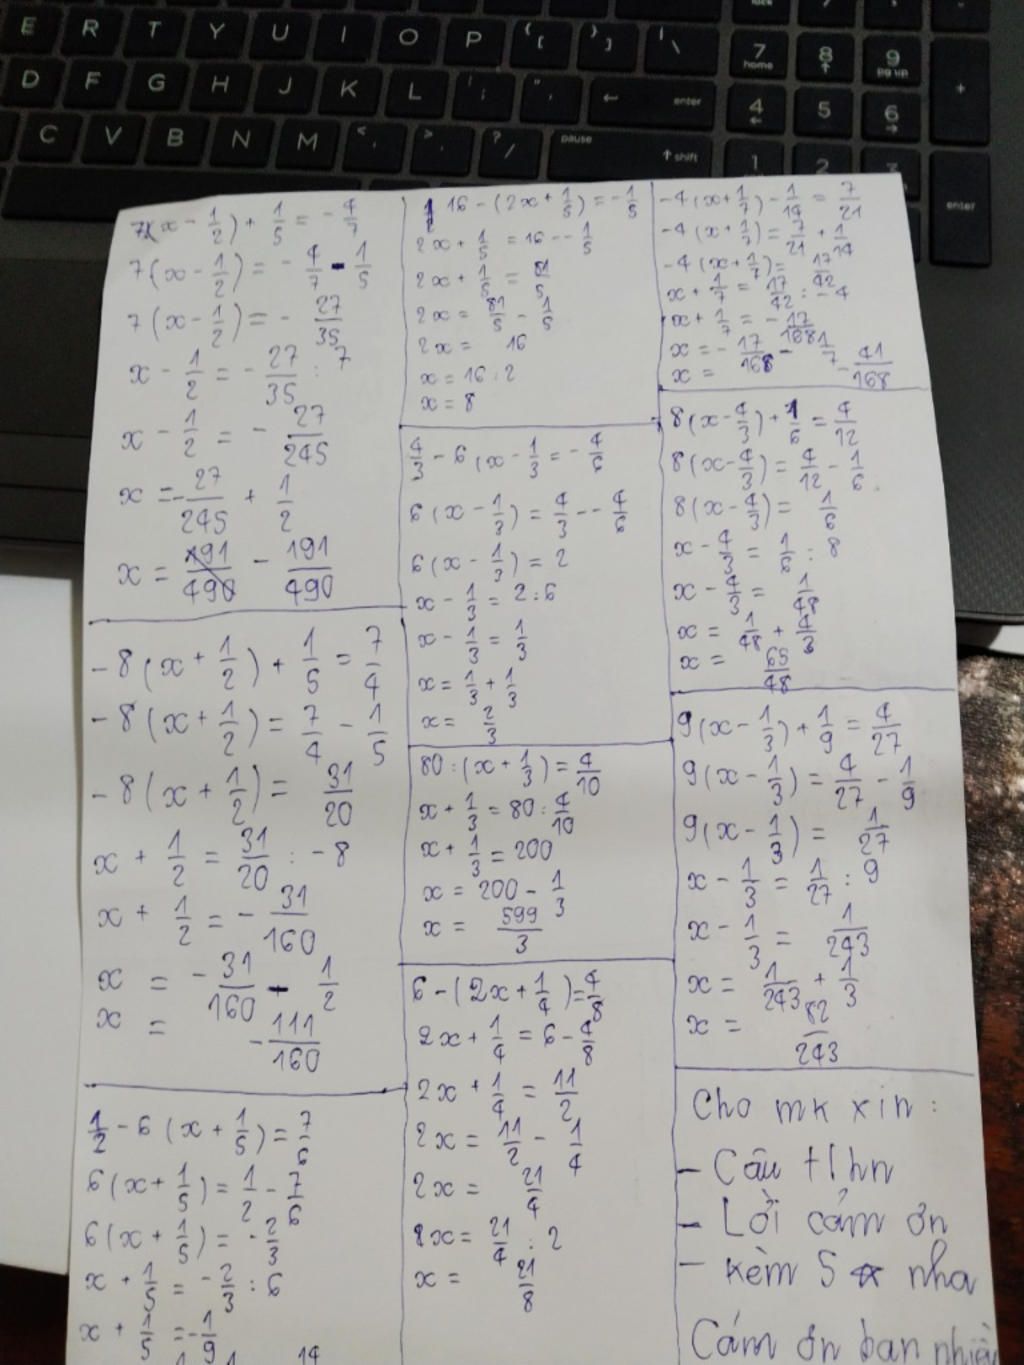 E R T Y U I O P { [ } ] | \ 7 home 8 9 pg up +
D F G H J K L : ; " ' enter 4 5 6
C V B N M < , > . ? / pause shift 1 2 3 enter
7(x - 1/2) + 1/5 = - 4/7
7(x - 1/2) = - 4/7 - 1/5
7(x - 1/2) = - 27/35
x - 1/2 = - 27/35 : 7
x - 1/2 = - 27/245
x = - 27/245 + 1/2
x = 191/490 - 191/490
-8(x + 1/2) + 1/5 = 7/4
-8(x + 1/2) = 7/4 - 1/5
-8(x + 1/2) = 31/20
x + 1/2 = 31/20 : -8
x + 1/2 = - 31/160
x = - 31/160 - 1/2
x = - 111/160
1/2 - 6(x + 1/5) = 7/6
6(x + 1/5) = 1/2 - 7/6
6(x + 1/5) = - 2/3
x + 1/5 = - 2/3 : 6
x + 1/5 = - 1/9
16 - (2x + 1/5) = - 1/5
2x + 1/5 = 16 - - 1/5
2x + 1/5 = 81/5
2x = 81/5 - 1/5
2x = 16
x = 16 : 2
x = 8
4/3 - 6(x - 1/3 = - 4/6
6(x - 1/3) = 4/3 - - 4/6
6(x - 1/3) = 2
x - 1/3 = 2 : 6
x - 1/3 = 1/3
x = 1/3 + 1/3
x = 2/3
80 : (x + 1/3) = 4/10
x + 1/3 = 80 : 4/10
x + 1/3 = 200
x = 200 - 1/3
x = 599/3
6 - (2x + 1/4) = 4/8
2x + 1/4 = 6 - 4/8
2x + 1/4 = 11/2
2x = 11/2 - 1/4
2x = 21/4
2x = 21/4 : 2
x = 21/8
-4(x + 1/7) - 1/14 = 7/21
-4(x + 1/7) = 7/21 + 1/14
-4(x + 1/7) = 17/42
x + 1/7 = 17/42 : -4
x + 1/7 = - 17/168
x = - 17/168 - 1/7
x = - 41/168
8(x - 4/3) + 1/6 = 4/12
8(x - 4/3) = 4/12 - 1/6
8(x - 4/3) = 1/6
x - 4/3 = 1/6 : 8
x - 4/3 = 1/48
x = 1/48 + 4/3
x = 65/48
9(x - 1/3) + 1/9 = 4/27
9(x - 1/3) = 4/27 - 1/9
9(x - 1/3) = 1/27
x - 1/3 = 1/27 : 9
x - 1/3 = 1/243
x = 1/243 + 1/3
x = 82/243
Cho mk xin :
- Câu tlhn
- Lời cảm ơn
- kèm 5 ☆ nha
Cảm ơn bạn nhiều